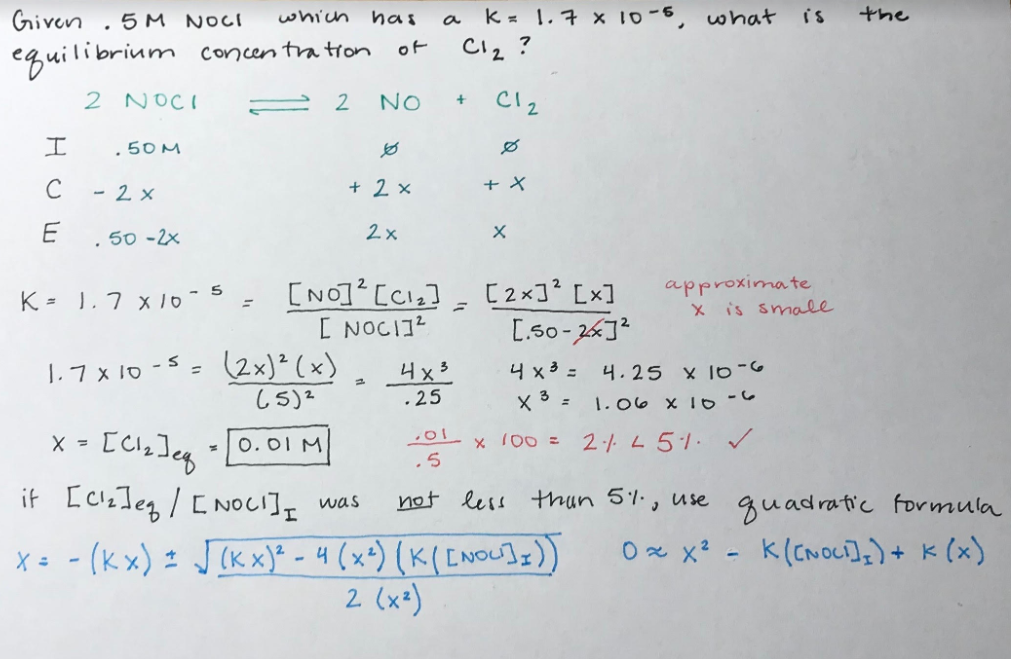 Given .5M NOCl which has a K = 1.7 x 10⁻⁵, what is the
equilibrium concentration of Cl₂?
2 NOCl ⇌ 2 NO + Cl₂
I .50M ∅ ∅
C - 2x + 2x + x
E .50 - 2x 2x x
K = 1.7 x 10⁻⁵ = [NO]² [Cl₂] / [NOCl]² = [2x]² [x] / [.50 - 2x]² approximate
x is small
1.7 x 10⁻⁵ = (2x)² (x) / (.5)² = 4x³ / .25 4x³ = 4.25 x 10⁻⁶
x³ = 1.06 x 10⁻⁶
x = [Cl₂]eq = 0.01 M .01 / .5 x 100 = 2% < 5% ✓
if [Cl₂]eq / [NOCl]I was not less than 5%, use quadratic formula
x = - (Kx) ± √(Kx)² - 4(x²)(K([NOCl]I)) / 2(x²) 0 ≈ x² - K([NOCl]I) + K(x)